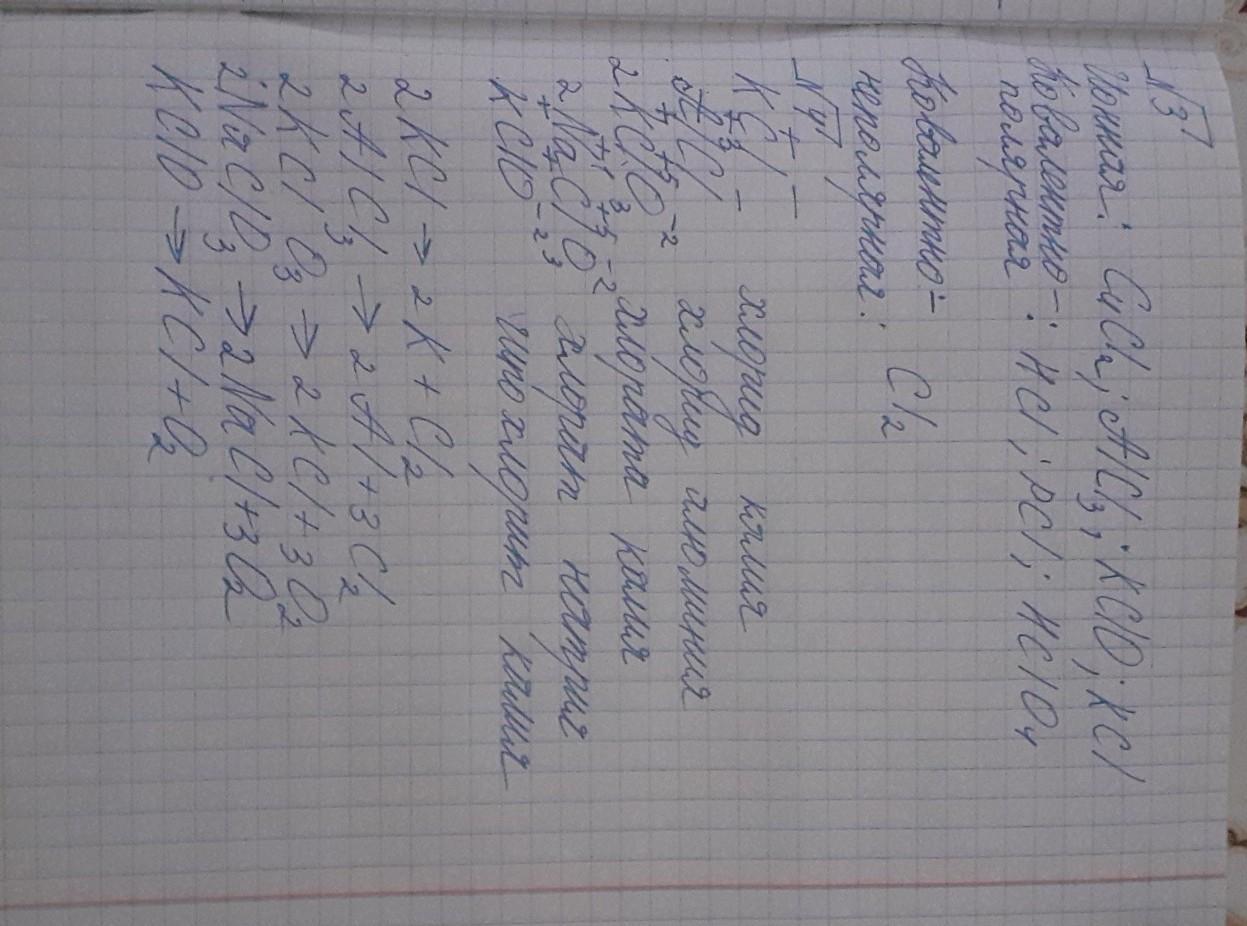 №3
Ионная: CuCl2; AlCl3; KClO; KCl
Ковалентно-
полярная : HCl; PCl; HClO4
Ковалентно-
неполярная: Cl2
№4
K+Cl- – хлорид калия
Al+3Cl- – хлорид алюминия
2K+Cl+5O-2 хлората калия
2Na+1Cl+5O3-2 хлорат натрия
K+Cl+O-2 гипохлорит калия
2KCl → 2K + Cl2
2AlCl3 → 2Al + 3Cl2
2KClO3 → 2KCl + 3O2
2NaClO3 → 2NaCl + 3O2
KClO → KCl + O2